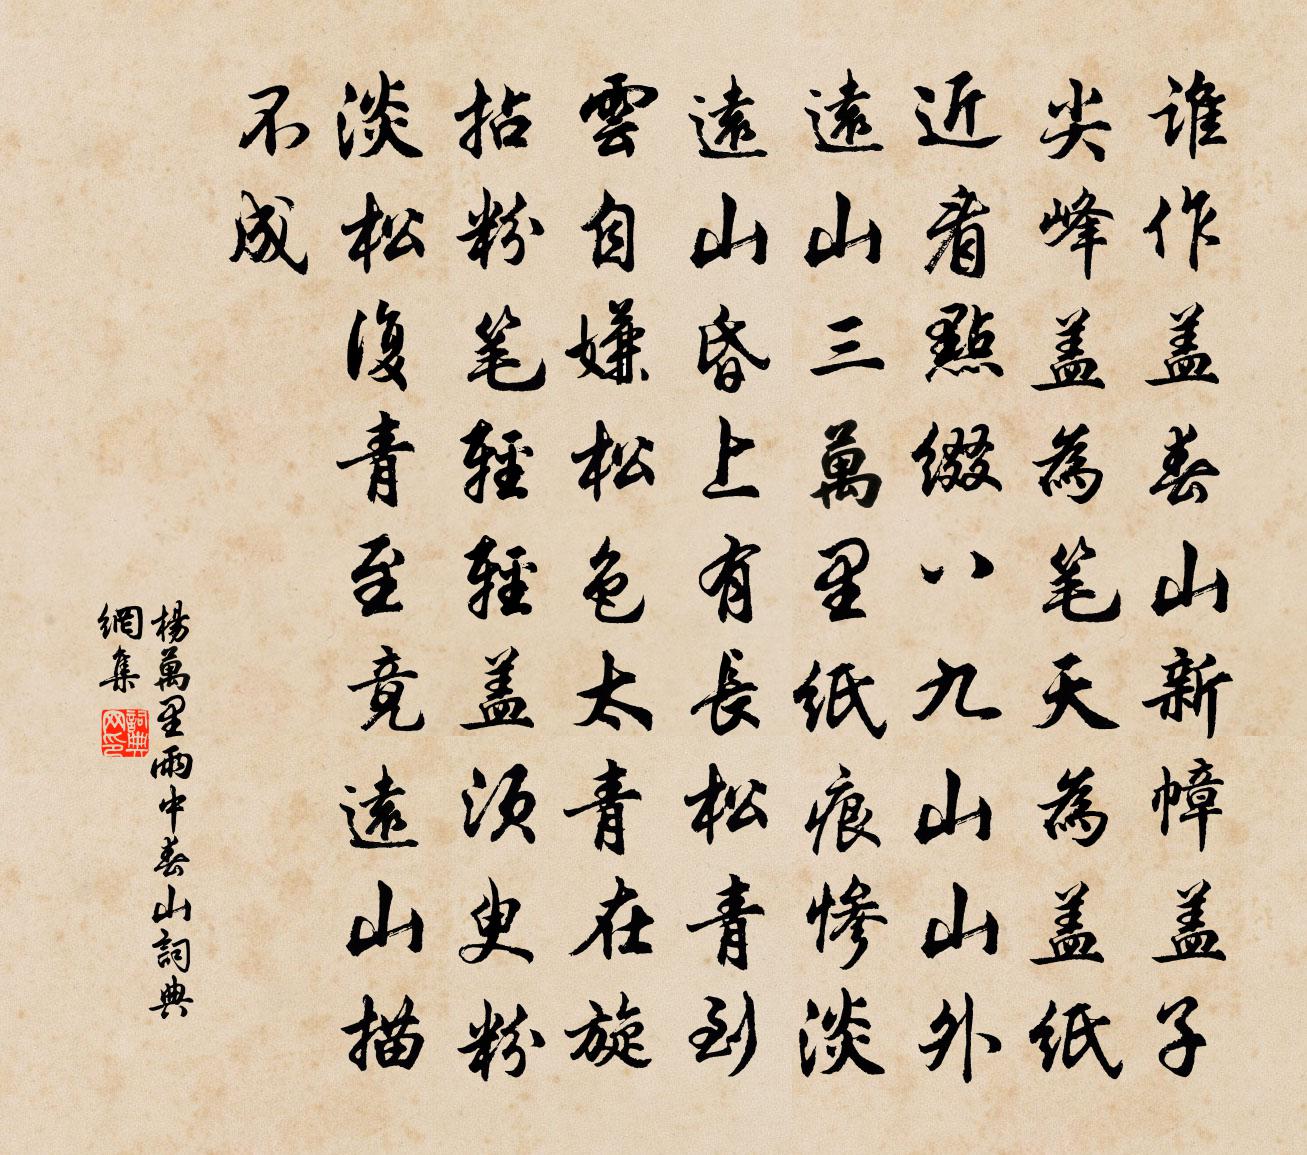 谁作盖春山新幛盖子
尖峰盖為笔天為盖紙
近看點綴八九山山外
遠山三萬里紙痕惨淡
遠山昏上有長松青到
雲自嫌松色太青在旋
拈粉笔輕輕盖须臾粉
淡松復青至竟遠山描
不成
楊萬里雨中春山詞典
網集
詞典
网印